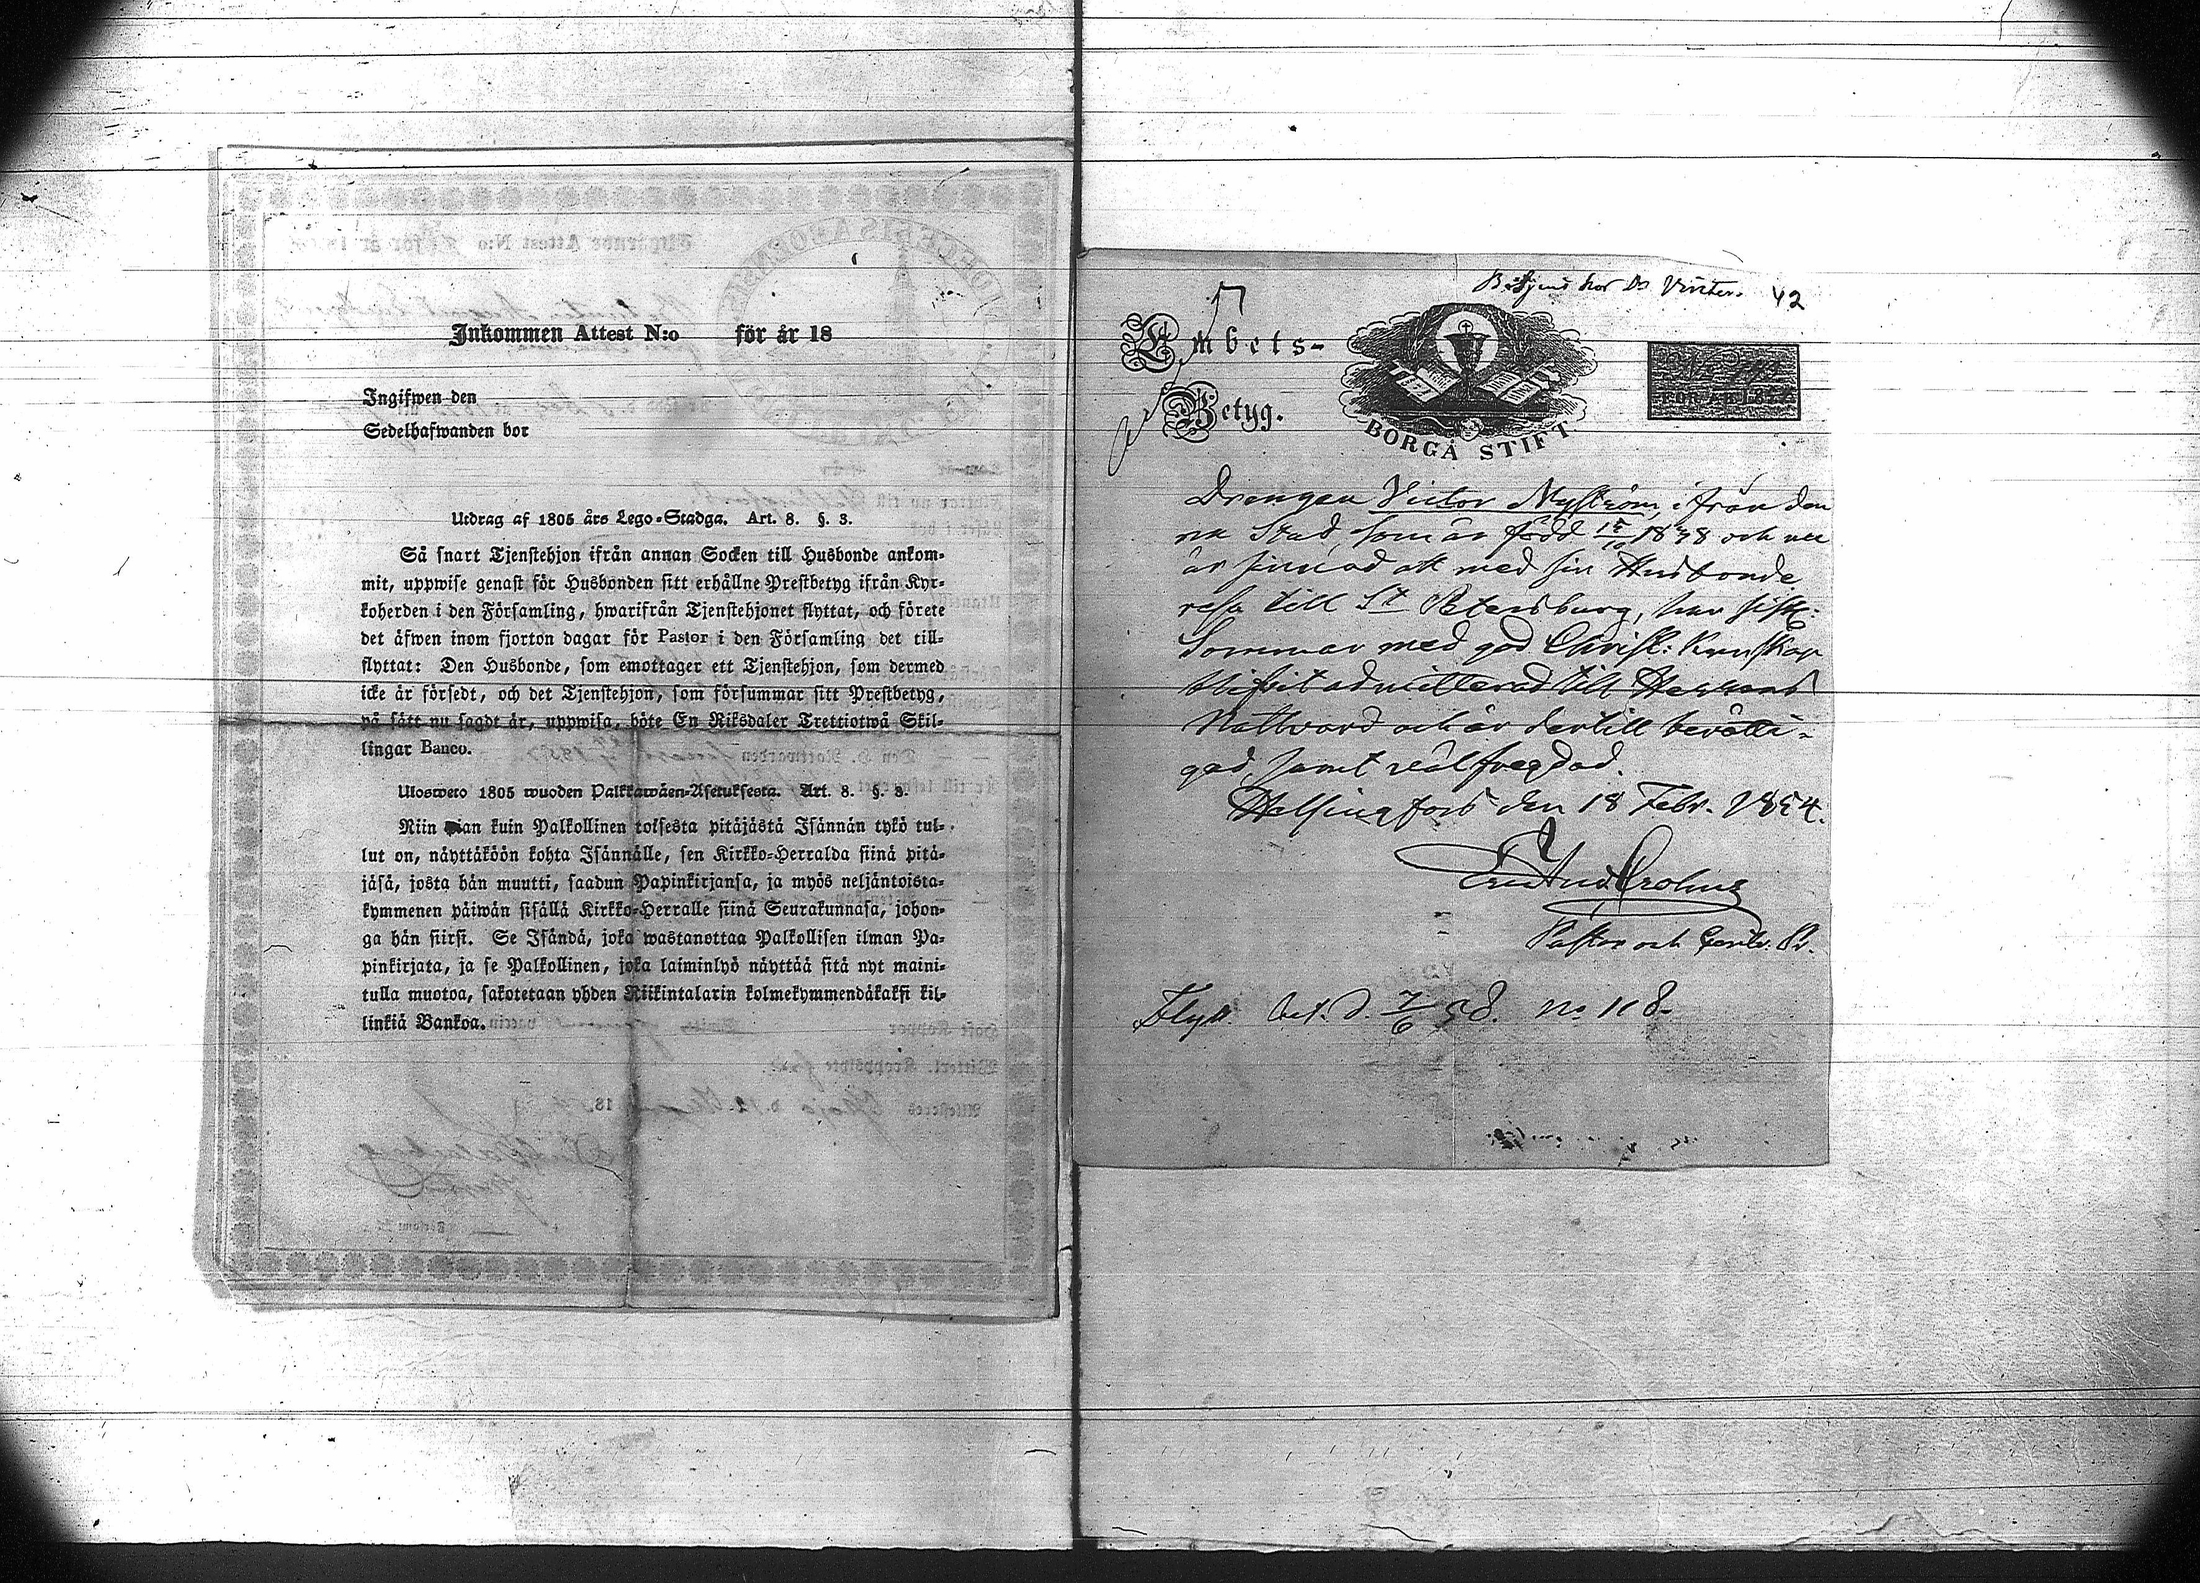 Inkommen Attest N:o för år 18
Ingifwen den
Sedelhafwanden bor
Utdrag af 1805 års Lego-Stadga. Art. 8. §. 3.
Så snart Tjenstehjon ifrån annan Socken till Husbonde ankom-
mit, uppwise genast för Husbonden sitt erhållne Prestbetyg ifrån Kyr-
koherden i den Församling, hwarifrån Tjenstehjonet flyttat, och förete
det äfwen inom fjorton dagar för Pastor i den Församling det till-
flyttat: Den Husbonde, som emottager ett Tjenstehjon, som dermed
icke är försedt, och det Tjenstehjon, som försummar sitt Prestbetyg,
på sätt nu sagdt är, uppwisa, böte En Riksdaler Trettiotwå Skil-
lingar Banco.
Ulosweto 1805 wuoden Palkkawäen-Asetuksesta. Art. 8. §. 3.
Niin pian kuin Palkollinen toisesta pitäjästä Isännän tykö tul-
lut on, näyttäköön kohta Isännälle, sen Kirkko-Herralda siinä pitä-
jäsä, josta hän muutti, saadun Papinkirjansa, ja myös neljäntoista-
kymmenen päiwän sisällä Kirkko-Herralle siinä Seurakunnasa, johon-
ga hän siirsi. Se Isändä, joka wastanottaa Palkollisen ilman Pa-
pinkirjata, ja se Palkollinen, joka laiminlyö näyttää sitä nyt maini-
tulla muotoa, sakotetaan yhden Riikintalarin kolmekymmendäkaksi kil-
linkiä Bankoa.
hos Dr Winter. 42
Embets-
Betyg.
BORGÅ STIFT
FÖR ÅR 185
Drengen Victor Nyström, ifrån den
na Stad, som är född 15/10 1838 och nu
är sinnad att med sin Husbonde
resa till St Petersburg, har sistl:
Sommar med god Christ: Kunskap
blifvit admitterad till Herrans
Nattvard och är dertill berätti-
gad, samt välfregdad.
Helsingfors den 18 Febr. 1854.
Crohns
Pastor och
Flytt. bet. d. 7/6 58. No 118.